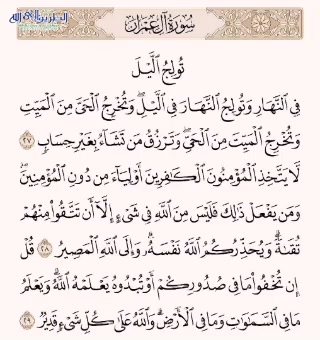 الطريق إلى الله
سُورَةُ آلِ عِمۡرَانَ
تُولِجُ ٱلَّيۡلَ
فِي ٱلنَّهَارِ وَتُولِجُ ٱلنَّهَارَ فِي ٱلَّيۡلِۖ وَتُخۡرِجُ ٱلۡحَيَّ مِنَ ٱلۡمَيِّتِ
وَتُخۡرِجُ ٱلۡمَيِّتَ مِنَ ٱلۡحَيِّۖ وَتَرۡزُقُ مَن تَشَآءُ بِغَيۡرِ حِسَابٖ ٢٧
لَّا يَتَّخِذِ ٱلۡمُؤۡمِنُونَ ٱلۡكَٰفِرِينَ أَوۡلِيَآءَ مِن دُونِ ٱلۡمُؤۡمِنِينَۖ
وَمَن يَفۡعَلۡ ذَٰلِكَ فَلَيۡسَ مِنَ ٱللَّهِ فِي شَيۡءٍ إِلَّآ أَن تَتَّقُواْ مِنۡهُمۡ
تُقَىٰةٗۗ وَيُحَذِّرُكُمُ ٱللَّهُ نَفۡسَهُۥۗ وَإِلَى ٱللَّهِ ٱلۡمَصِيرُ ٢٨ قُلۡ
إِن تُخۡفُواْ مَا فِي صُدُورِكُمۡ أَوۡ تُبۡدُوهُ يَعۡلَمۡهُ ٱللَّهُۗ وَيَعۡلَمُ
مَا فِي ٱلسَّمَٰوَٰتِ وَمَا فِي ٱلۡأَرۡضِۗ وَٱللَّهُ عَلَىٰ كُلِّ شَيۡءٖ قَدِيرٞ ٢٩